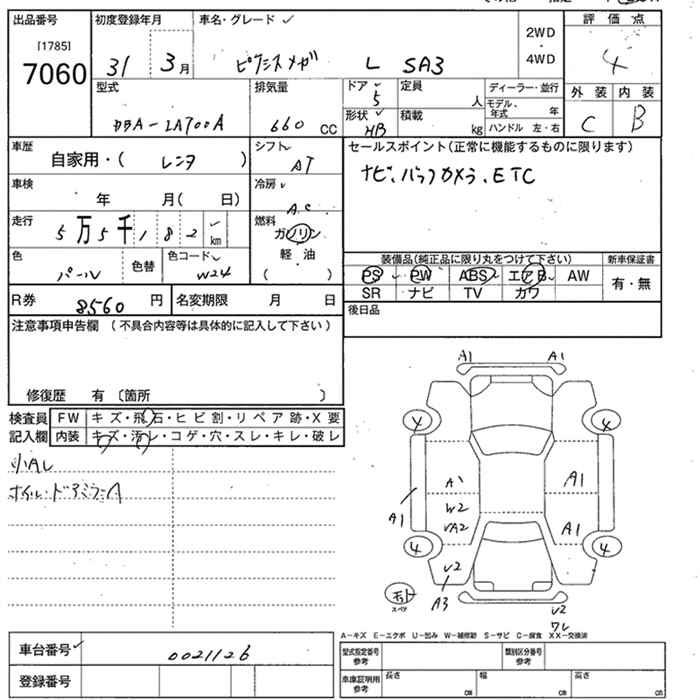 出品番号 初度登録年月 車名・グレード 評価点
[1785] 2WD
7060 31 3月 ピクシスメガ L SA3 4WD 4
型式 排気量 ドア 定員 ディーラー・並行 外装 内装
5 人 モデル・年式 年
DBA-LA700A 660 CC 形状 積載 C B
HB kg ハンドル 左・右
車歴 自家用・( レンタ ) シフト セールスポイント(正常に機能するものに限ります)
AT
車検 年 月( 日) 冷房 ナビ、バックカメラ、ETC
A.C
走行 5万5千182km 燃料
ガソリン
色 色替 色コード 軽・油 装備品(純正品に限り丸をつけて下さい) 新車保証書
パール W24 ( ) PS PW ABS エアB AW 有・無
R券 8,560円 名変期限 月 日 SR ナビ TV カワ
注意事項申告欄 (不具合内容等は具体的に記入して下さい) 後日品
修復歴 有 〔箇所 〕
検査員 FW キズ・飛石・ヒビ割・リペア跡・X要
記入欄 内装 キズ・汚レ・コゲ・穴・スレ・キレ・破レ
A1 A1
小AL
ホイル・ドアミラーA
A1
W2
A1
A1
4 4
V2
A3 V2
スペア
A-キズ E-エクボ U-凹み W-補修跡 S-サビ C-腐食 XX-交換済
車台番号 0021126 型式指定番号 参考 類別区分番号 参考
登録番号 車庫証明用 参考 長さ cm 幅 cm 高さ cm